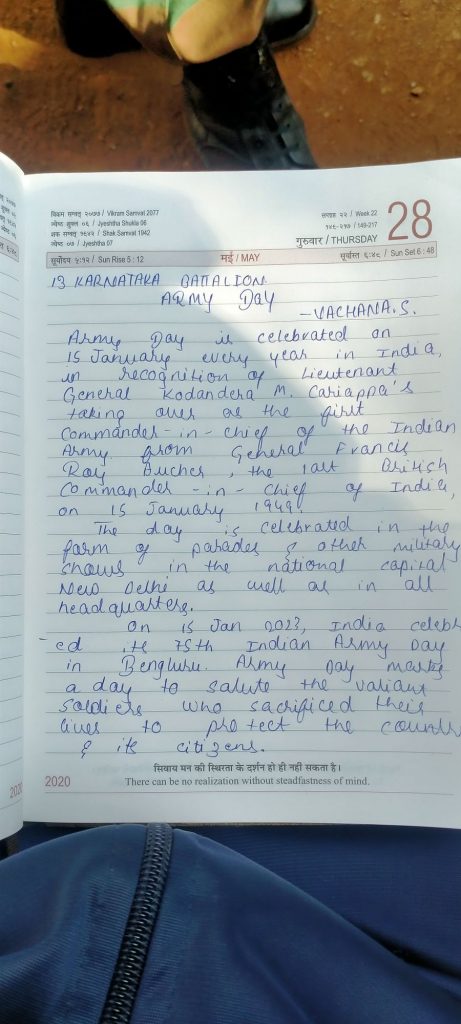 विक्रम सम्वत् २०७७ / Vikram Samvat 2077
ज्येष्ठ शुक्ल ०६ / Jyeshtha Shukla 06
शक सम्वत् १९४२ / Shak Samvat 1942
ज्येष्ठ ०७ / Jyeshtha 07
सप्ताह २२ / Week 22
१४९-२१७ / 149-217
गुरुवार / THURSDAY
28
सूर्योदय ५:१२ / Sun Rise 5 : 12
मई / MAY
सूर्यास्त ६:४८ / Sun Set 6 : 48
13 KARNATAKA BATTALION
ARMY DAY
-VACHANA.S.
Army Day is celebrated on
15 January every year in India,
in recognition of Lieutenant
General Kodandera M. Cariappa's
taking over as the first
Commander-in-chief of the Indian
Army from General Francis
Roy Bucher, the last British
Commander-in-chief of India,
on 15 January 1949.
The day is celebrated in the
form of parades & other military
shows in the national capital
New Delhi as well as in all
headquarters.
On 15 Jan 2023, India celebr
-ed its 75th Indian Army Day
in Bengluru. Army Day marks
a day to salute the variant
soldiers who sacrificed their
lives to protect the countr
& its citizens.
सिवाय मन की स्थिरता के दर्शन हो ही नही सकता है।
There can be no realization without steadfastness of mind.
2020